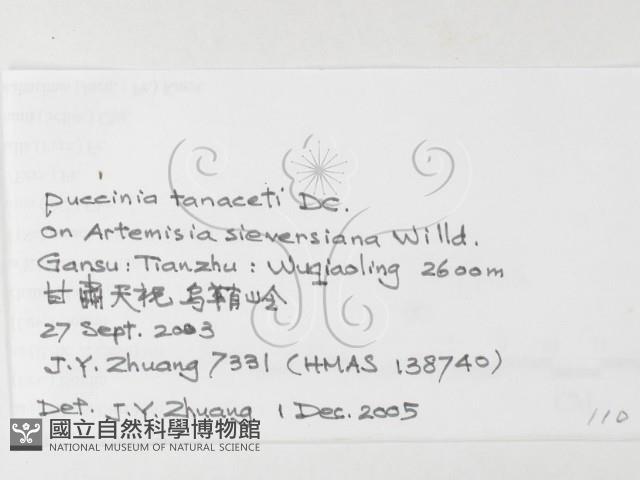 puccinia tanaceti DC.
on Artemisia sieversiana Willd.
Gansu: Tianzhu: Wuqiaoling 2600m
甘肅天祝烏鞘岭
27 Sept. 2003
J.Y. Zhuang 7331 (HMAS 138740)
Det. J.Y. Zhuang 1 Dec. 2005
110
國立自然科學博物館
NATIONAL MUSEUM OF NATURAL SCIENCE